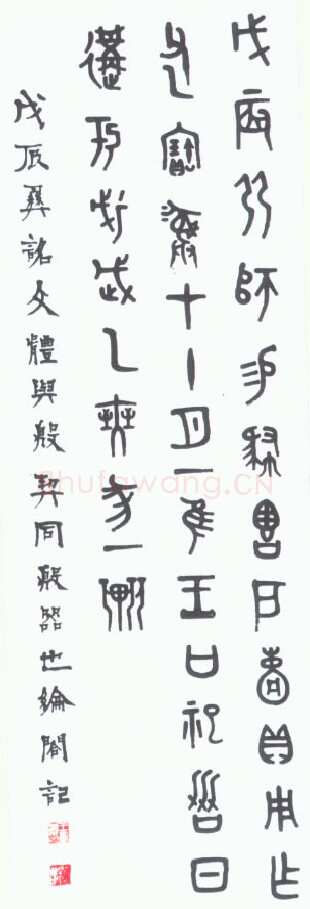 戊辰弜師易肄𧶜貝用乍
父乙寶彝才十月一隹王廿祀劦日
遘于妣戊武乙奭豕一
戊辰彝銘文體與殷契同殷器也綸閣記
shufawang.CN